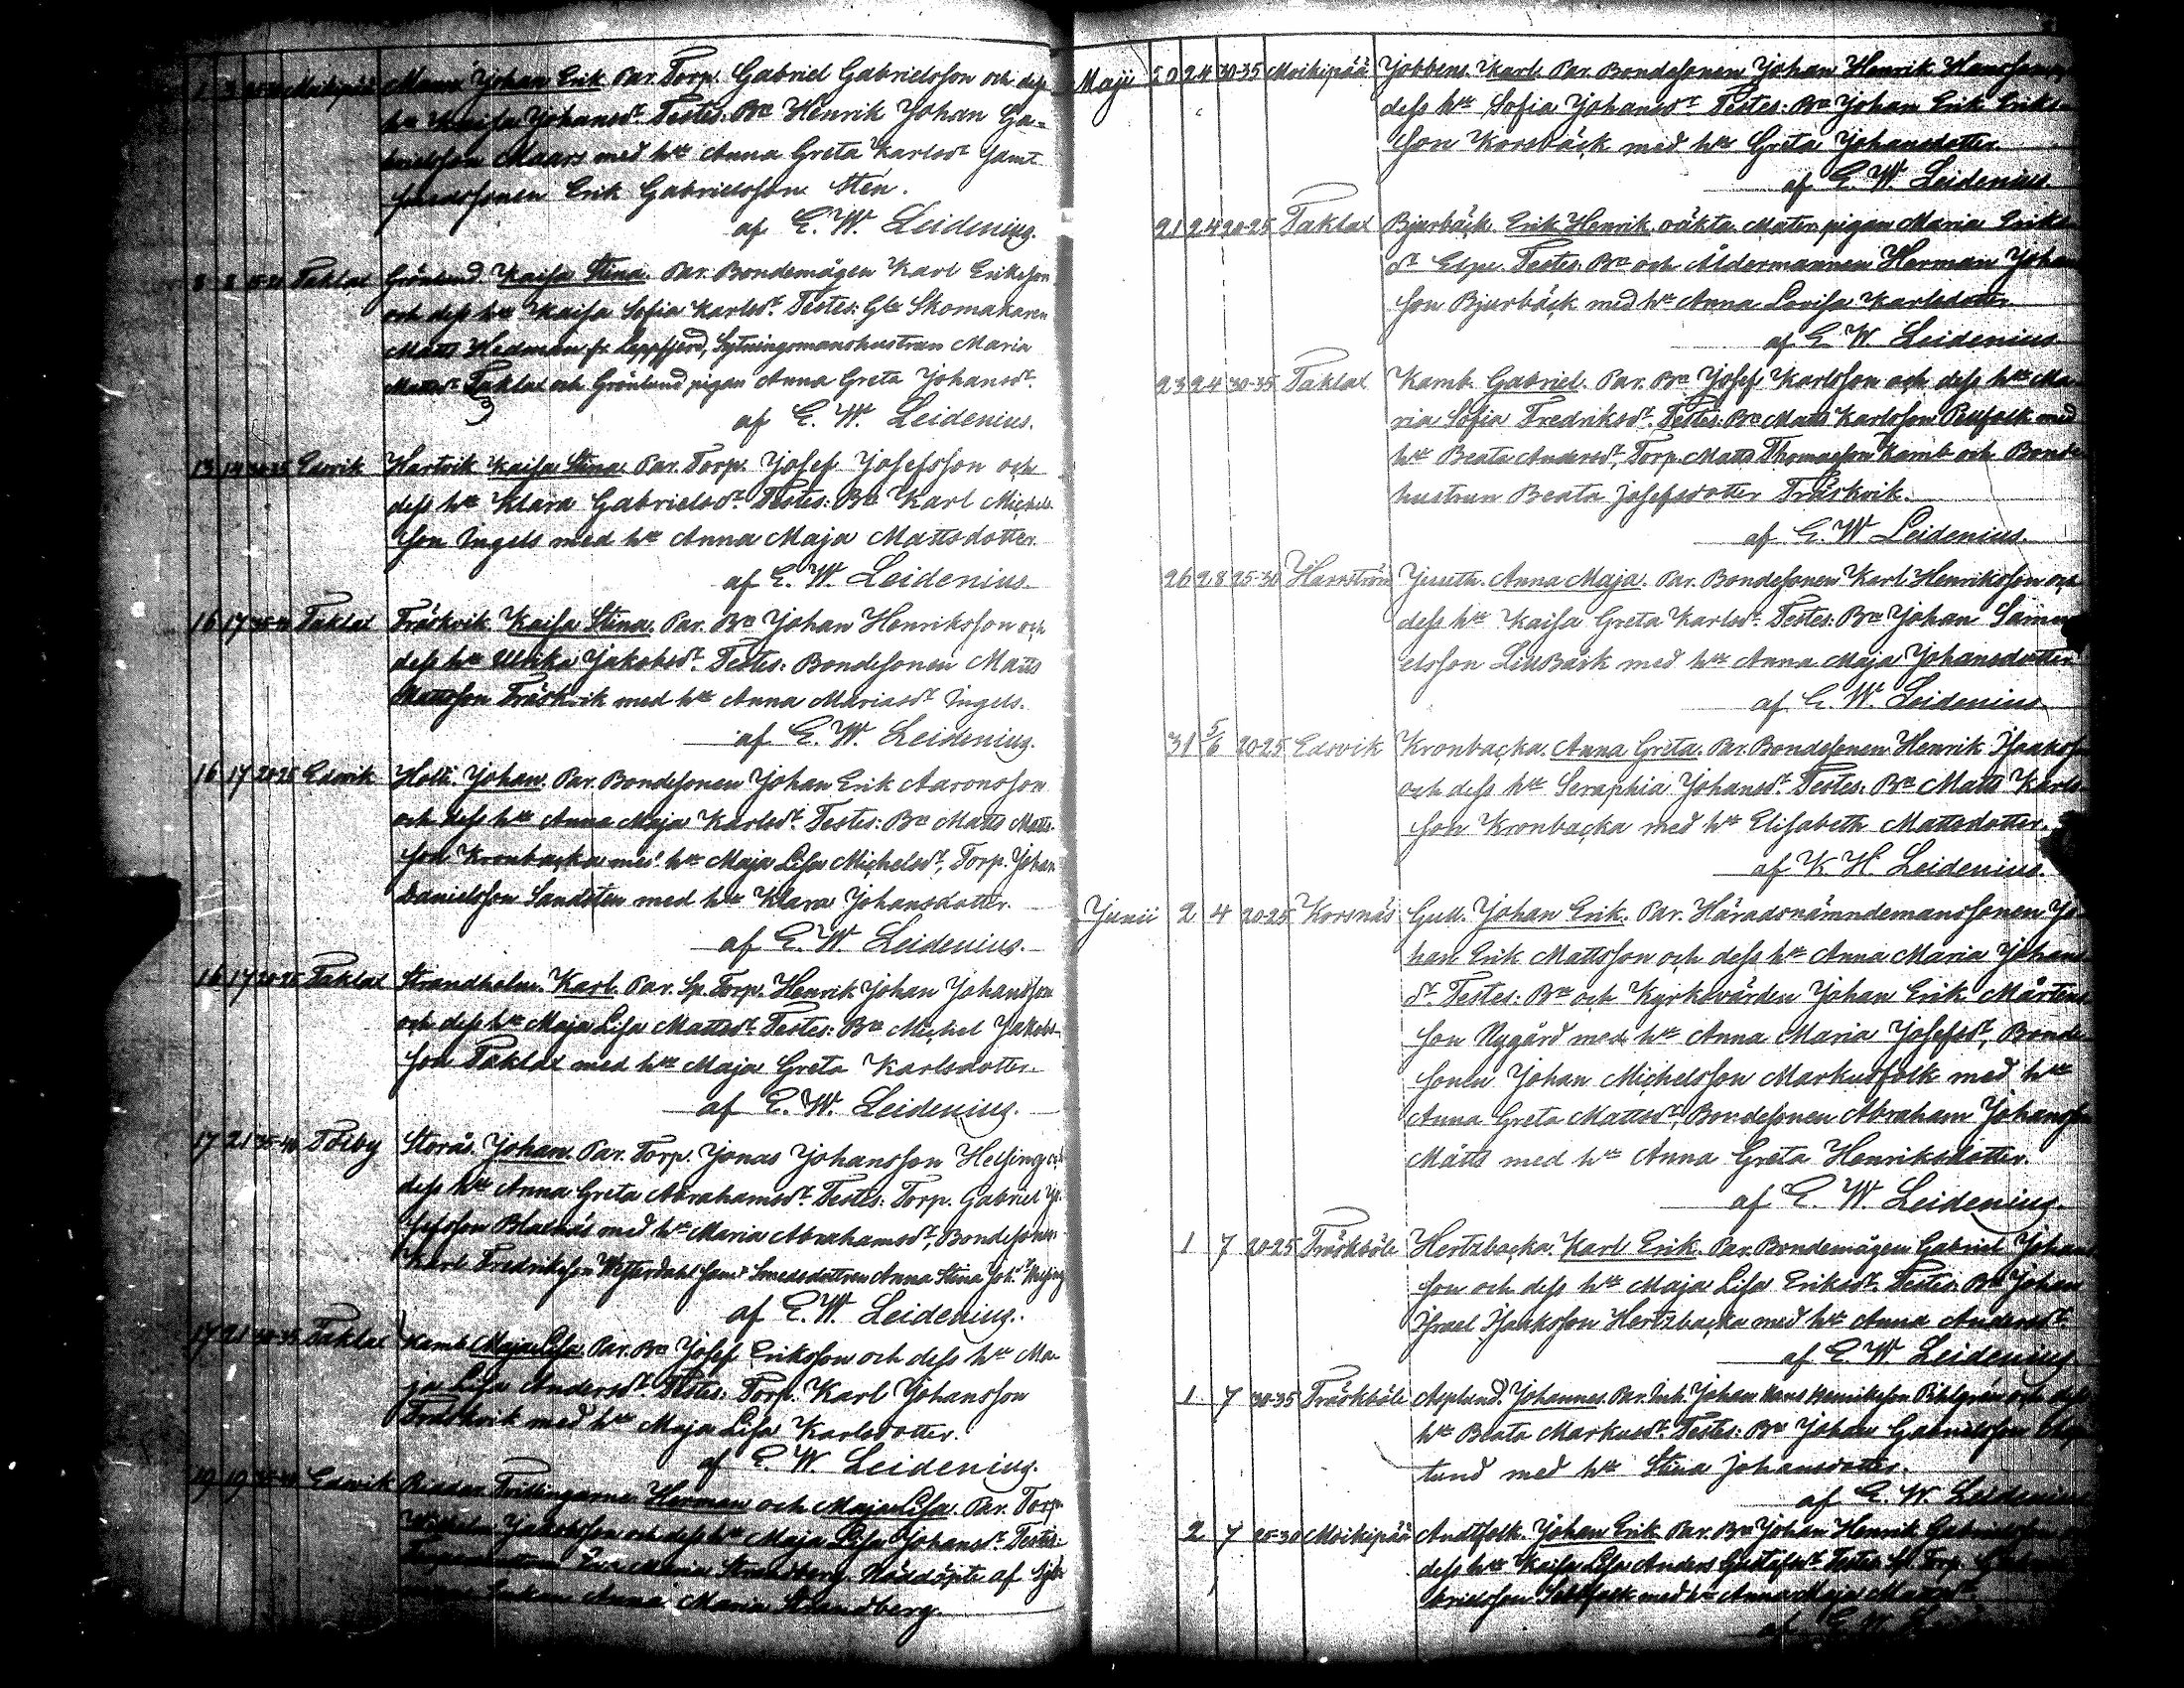 1 3 Moikipää Maars Johan Erik. Par. Torp. Gabriel Gabrielsson och dess
hu Kaisa Johansdr. Testes: Bn Henrik Johan Ga-
brielsson Maars med hu Anna Greta Karlsdr samt
Erik Gabrielsson Sten.
af E. W. Leidenius.
8 8 Taklax Grönlund. Kaisa Stina. Par. Bondemågen Karl Eriksson
och dess hu Kaisa Sofia Karlsdr. Testes: Gla Skomakaren
Matts Wedman fr. Lappfjerd, Sytningsmanshustrun Maria
Mattsdr Taklax och Grönlund pigan Anna Greta Johansdr.
af E. W. Leidenius.
13 14 30-35 Edsvik Hartvik Kaisa Stina. Par. Torp. Josef Josefsson och
dess hu Klara Gabrielsdr. Testes: Bn Karl Michels-
son Ingels med hu Anna Maja Mattsdotter.
af E. W. Leidenius.
16 17 Taklax Träskvik Kaisa Stina. Par. Bn Johan Henriksson och
dess hu Ulrika Jakobsdr. Testes: Bondesonen Matts
Mattsson Träskvik med hu Anna Mariasdr Ingels.
af E. W. Leidenius.
16 17 20-25 Edsvik Holti. Johan. Par. Bondesonen Johan Erik Aaronsson
och dess hu Anna Maja Karlsdr. Testes: Bn Matts Matts-
son Kronbacka med hu Maja Lisa Michelsdr, Torp. Johan
Danielsson Sandsten med hu Klara Johansdotter.
af E. W. Leidenius.
16 17 20-25 Taklax Strandholm. Karl. Par. Sp. Torp. Henrik Johan Johansson
och dess hu Maja Lisa Mattsdr. Testes: Bn Michel Jakobs-
son Taklax med hu Maja Greta Karlsdotter.
af E. W. Leidenius.
17 21 35-40 Töiby Storås. Johan. Par. Torp. Jonas Johansson Helsing och
dess hu Anna Greta Abrahamsdr. Testes: Torp. Gabriel Jo-
sefsson Blaxnäs med hu Maria Abrahamsdr, Bondesonen
Karl Fredriksson Westerdahl samt Smedsdottren Anna Stina Joh.dr Helsing
af E. W. Leidenius.
17 21 30-35 Taklax Kamb Maja Lisa. Par. Bn Josef Eriksson och dess hu Ma-
ja Lisa Andersdr. Testes: Torp. Karl Johansson
Träskvik med hu Maja Lisa Karlsdotter.
af E. W. Leidenius.
19 19 Edsvik Riddar Tvillingarne Herman och Maja Lisa. Par. Torp.
Wilhelm Jakobsson och dess hu Maja Lisa Johansdr. Testis:
Eva Maria Strandberg. Nöddöpte af
Enkan Anna Maria Strandberg.
Maji 20 24 30-35 Moikipää Jobbens. Karl. Par. Bondesonen Johan Henrik Hansson och
dess hu Sofia Johansdr. Testes: Bn Johan Erik Eriks-
son Korsbäck med hu Greta Johansdotter.
af E. W. Leidenius.
21 24 20-25 Taklax Bjurbäck. Erik Henrik. oäkta. Mater: pigan Maria Eriks-
dr Elgu. Testes: Bn och Åldermannen Herman Johans-
son Bjurbäck med hu Anna Lovisa Karlsdotter.
af E. W. Leidenius.
23 24 30-35 Taklax Kamb. Gabriel. Par. Bn Josef Karlsson och dess hu Ma-
ria Sofia Fredriksdr. Testes: Bn Matts Karlsson Pellfolk med
hu Beata Andersdr, Torp. Matts Thomasson Kamb och Bonde-
hustrun Beata Josefsdotter Träskvik.
af E. W. Leidenius.
26 28 25-30 Harrström Juuth. Anna Maja. Par. Bondesonen Karl Henriksson och
dess hu Kaisa Greta Karlsdr. Testes: Bn Johan Samu-
elsson LillBåsk med hu Anna Maja Johansdotter.
af E. W. Leidenius.
31 5/6 20-25 Edsvik Kronbacka. Anna Greta. Par. Bondesonen Henrik Isaksson
och dess hu Seraphia Johansdr. Testes: Bn Matts Karls-
son Kronbacka med hu Elisabeth Mattsdotter.
af K. H. Leidenius.
Junii 2 4 20-25 Korsnäs Gull. Johan Erik. Par. Häradsnämndemanssonen Jo-
han Erik Mattsson och dess hu Anna Maria Johans-
dr. Testes: Bn och Kyrkovärden Johan Erik Mårtens-
son Nygård med hu Anna Maria Josefsdr, Bonde-
sonen Johan Michelsson Markusfolk med hu
Anna Greta Mattsdr, Bondesonen Abraham Johansson
Mätts med hu Anna Greta Henriksdotter.
af E. W. Leidenius.
1 7 20-25 Träskböle Hertzbacka. Karl Erik. Par. Bondemågen Gabriel Johans-
son och dess hu Maja Lisa Eriksdr. Testes: Bn Johan
Israel Isaksson Hertzbacka med hu Anna Andersdr.
af E. W. Leidenius.
1 7 30-35 Träskböle Asplund. Johannes. Par. Inh. Johan Hans Henriksson Pihlgren och dess
hu Beata Markusdr. Testes: Bn Johan Gabrielsson Asp-
lund med hu Stina Johansdotter.
af E. W. Leidenius.
2 7 25-30 Moikipää Andtfolk. Johan Erik. Par. Bn Johan Henrik Gabrielsson och
dess hu Kaisa Lisa Anders Gustafsdr. Testes: Sp. Torp. Ga-
brielsson Södfolk med hu Anna Maja Mattsdr.
af E. W.